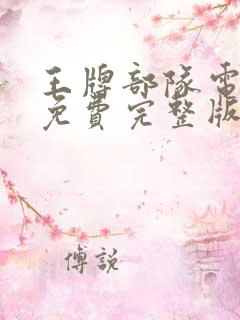 王牌部隊電
免費完整版
傅說